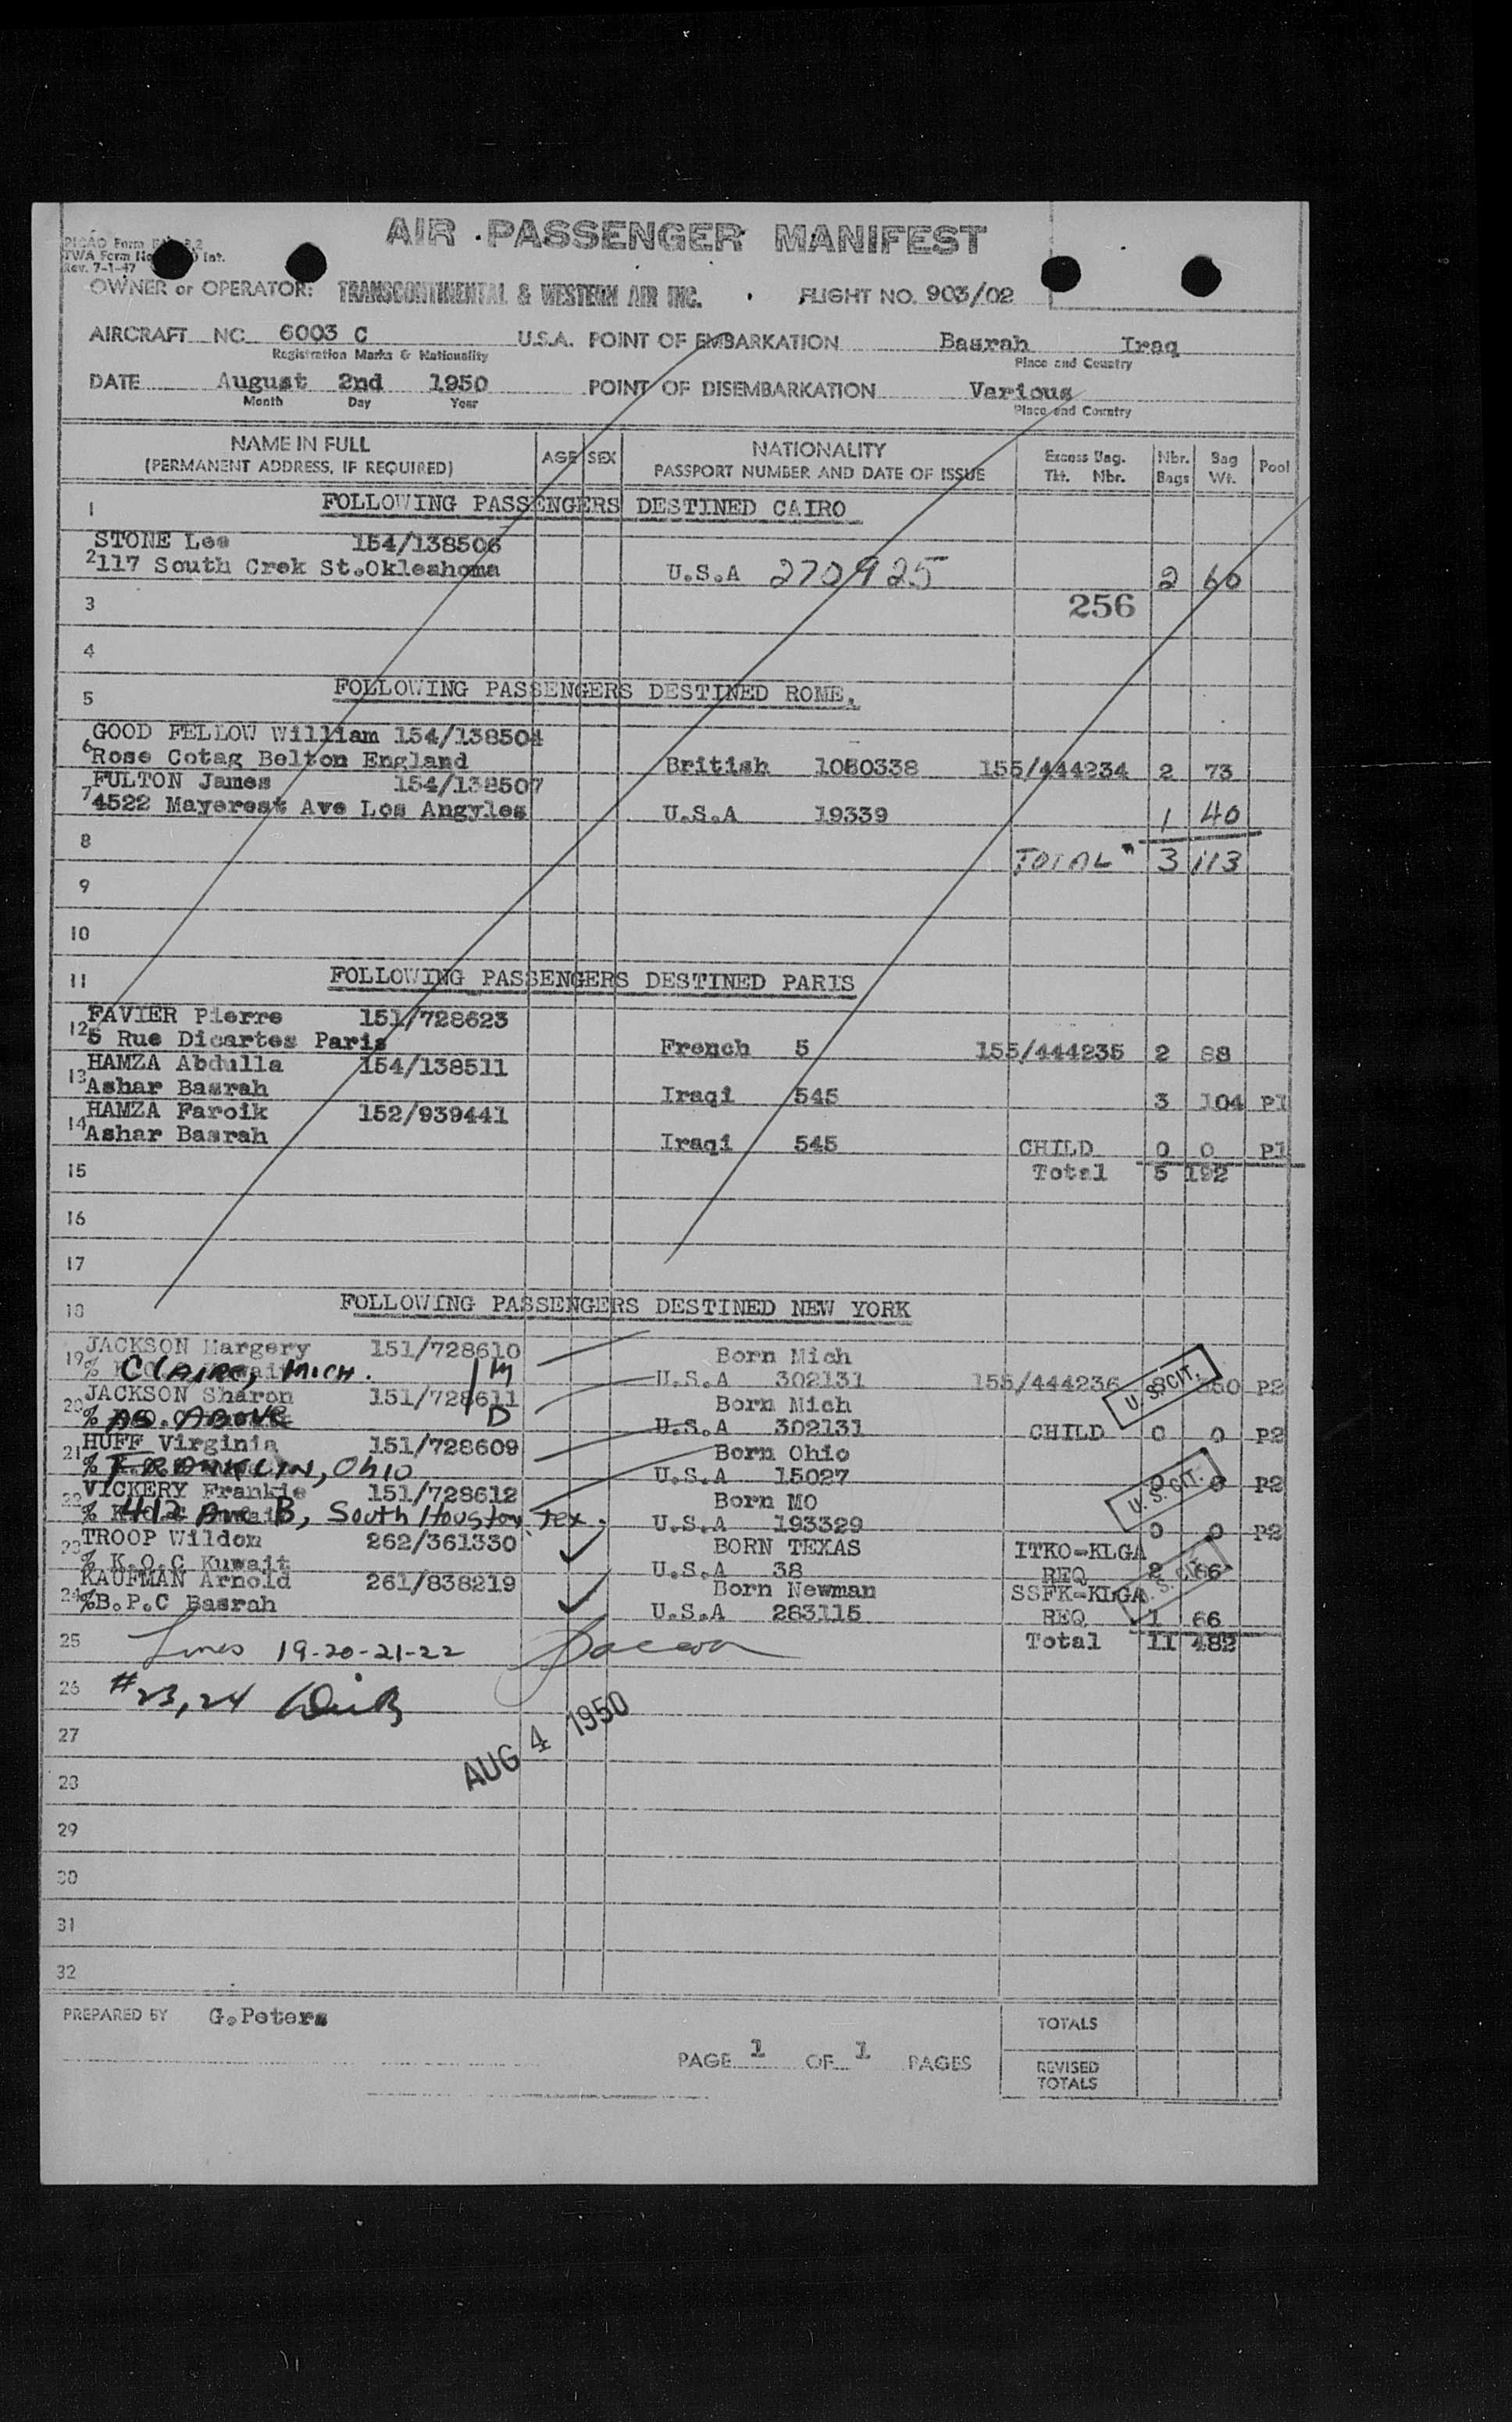 AIR PASSENGER MANIFEST
TWA Form No Int.
Rev. 7-1-47
OWNER or OPERATOR: TRANSCONTINENTAL & WESTERN AIR INC. FLIGHT NO. 903/02
AIRCRAFT NC 6003 C U.S.A. POINT OF EMBARKATION Basrah Iraq
Registration Marks & Nationality Place and Country
DATE August 2nd 1950 POINT OF DISEMBARKATION Various
Month Day Year Place and Country
NAME IN FULL AGE SEX NATIONALITY Excess Bag. Nbr. Bag Pool
(PERMANENT ADDRESS, IF REQUIRED) PASSPORT NUMBER AND DATE OF ISSUE Tkt. Nbr. Bags Wt.
1 FOLLOWING PASSENGERS DESTINED CAIRO
STONE Lee 154/138506
2 117 South Crek St.Okleahoma U.S.A 270925 2 60
3 256
4
5 FOLLOWING PASSENGERS DESTINED ROME.
GOOD FELLOW William 154/138504
6 Rose Cotag Belton England British 1080338 155/444234 2 73
FULTON James 154/138507
7 4522 Mayerest Ave Los Angyles U.S.A 19339 1 40
8 TOTAL 3 113
9
10
11 FOLLOWING PASSENGERS DESTINED PARIS
FAVIER Pierre 151/728623
12 5 Rue Dicartes Paris French 5 155/444235 2 88
HAMZA Abdulla 154/138511
13 Ashar Basrah Iraqi 545 3 104 P1
HAMZA Faroik 152/939441
14 Ashar Basrah Iraqi 545 CHILD 0 0 P1
15 Total 5 192
16
17
18 FOLLOWING PASSENGERS DESTINED NEW YORK
JACKSON Margery 151/728610 Born Mich
19 % CLAIRE, MICH. M U.S.A 302131 155/444236 8 350 P2
U. S. CIT.
JACKSON Sharon 151/728611 Born Mich
20 % AS ABOVE D U.S.A 302131 CHILD 0 0 P2
HUFF Virginia 151/728609 Born Ohio
21 % FRANKLIN, Ohio U.S.A 15027 0 0 P2
U. S. CIT.
VICKERY Frankie 151/728612 Born MO
22 % 412 Ave B, South Houston, Tex. U.S.A 193329 0 0 P2
TROOP Wildom 262/361330 BORN TEXAS ITKO-KLGA
23 % K.O.C Kuwait U.S.A 38 REQ 2 66
U. S. CIT.
KAUFMAN Arnold 261/838219 Born Newman SSFK-KLGA
24 %B.P.C Basrah U.S.A 283115 REQ 1 66
25 Lines 19-20-21-22 Total 11 482
26 #23, 24
AUG 4 1950
27
28
29
30
31
32
PREPARED BY G.Peters TOTALS
PAGE 1 OF 1 PAGES REVISED
TOTALS